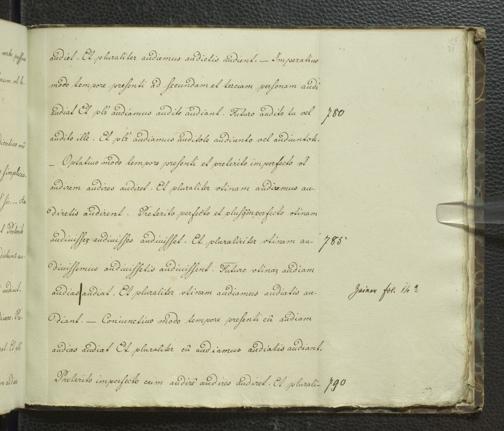 audiet. Et pluraliter audiemus audietis audient. — Imperativo
modo tempore presenti ad secundam et terciam personam audi
audiat Et plr̃ audiamus audite audiant. Futuro audito tu vel
780
audito ille. Et plr̃ audiamus auditote audiunto vel audiuntote.
— Optativo modo tempore presenti et preterito imperfecto ut
audirem audires audiret. Et pluraliter utinam audiremus au-
diretis audirent. Preterito perfecto et plusq̃imperfecto utinam
audivissem audivisses audivisset. Et pluraliter utinam au-
785
divissemus audivissetis audivissent. Futuro utinam audiam
audias audiat. Et pluraliter utinam audiamus audiatis au-
fol. 142
diant. — Coniunctivo modo tempore presenti cũ audiam
audias audiat Et pluraliter cũ audiamus audiatis audiant.
Preterito imperfecto cum audirẽ audires audiret. Et plurali-
790